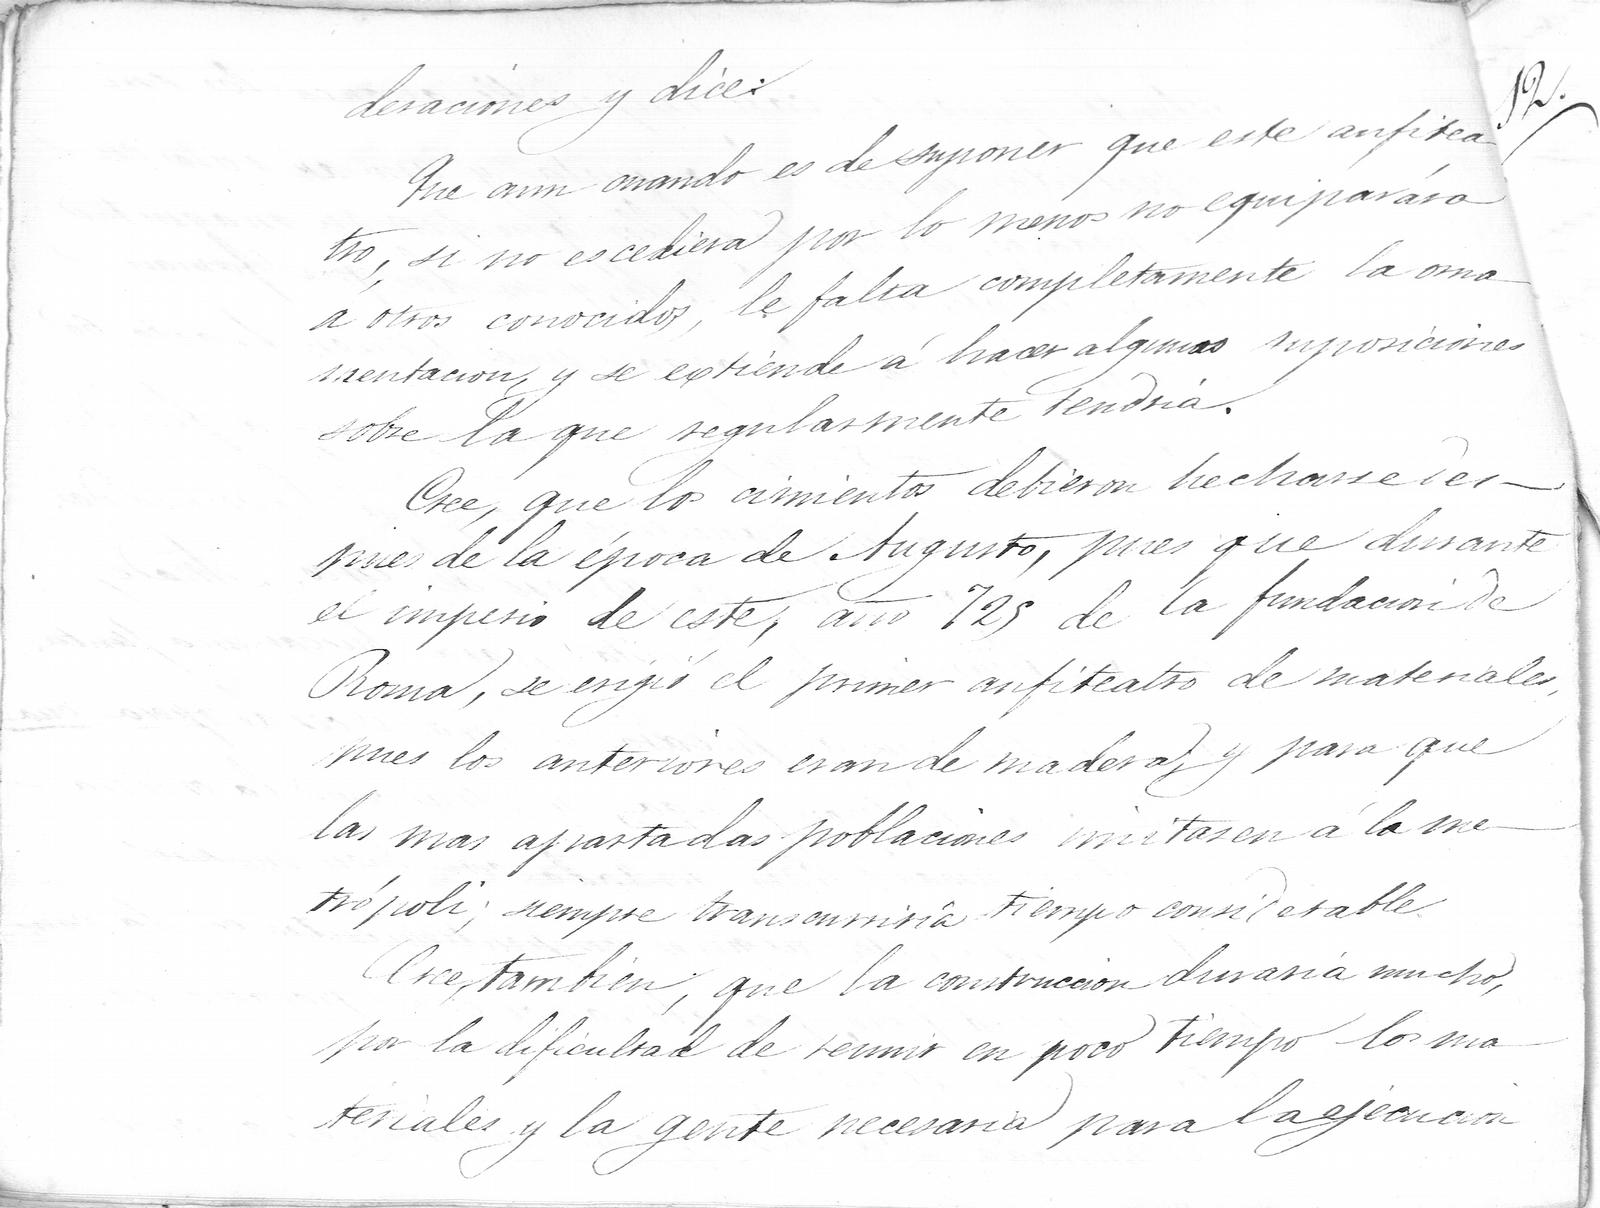 deraciones y dice:
12.
Que aun cuando es de suponer que este anfitea
tro, si no escediera por lo menos no equiparára
á otros conocidos, le falta completamente la orna
mentacion, y se extiende á hacer algunas suposiciones
sobre la que regularmente tendria.
Cree, que los cimientos debieron hecharse des-
pues de la época de Augusto, pues que durante
el imperio de este, año 725 de la fundacion de
Roma, se erigió el primer anfiteatro de materiales,
pues los anteriores eran de madera, y para que
las mas apartadas poblaciones imitasen á la me-
trópoli, siempre transcurriria tiempo considerable.
Cree, tambien, que la construccion duraria mucho,
por la dificultad de reunir en poco tiempo los ma
teriales y la gente necesaria para la ejecucion